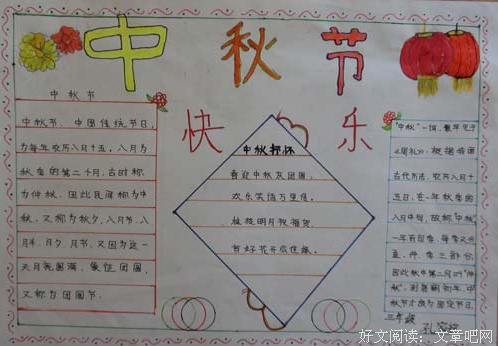 中秋节
快乐
中秋节
中秋节,中国传统节日,
为每年农历八月十五,八月为
秋季的第二个月,古时称
为仲秋,因此民间称为中
秋,又称为秋夕、八月节、八
月半、月夕、月节,又因为这一
天月亮圆满,象征团圆,
又称为团圆节。
中秋抒怀
喜迎中秋友团圆,
欢乐笑语万里传。
枝挂明月祝福贺,
"中秋"一词,最早见于
《周礼》。根据我国
古代历法,农历八月十
五日,在一年秋季的
八月中旬,故称"中秋"
一年有四季,每季又分
孟、仲、季三部分,
因此秋中第二月叫"仲
秋",到唐朝初年,中
秋节才成为固定节日。
三年级
好文阅读:文章吧网